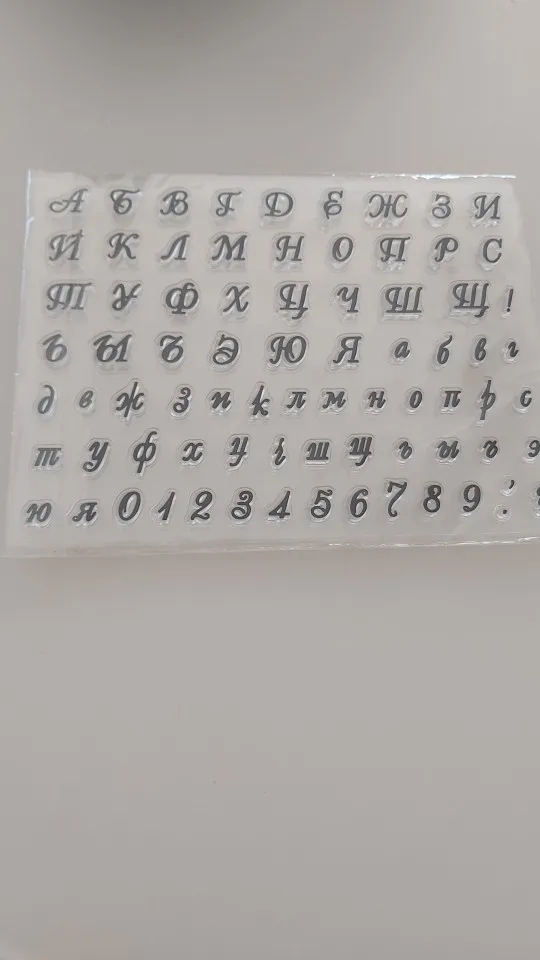 А Б В Г Д Е Ж З И
Й К Л М Н О П Р С
Т У Ф Х Ц Ч Ш Щ !
Ъ Ы Ь Э Ю Я а б в г
д е ж з и k л м н о п р с
т у ф х ц ч ш щ ъ ы ь э
ю я 0 1 2 3 4 5 6 7 8 9 . ,